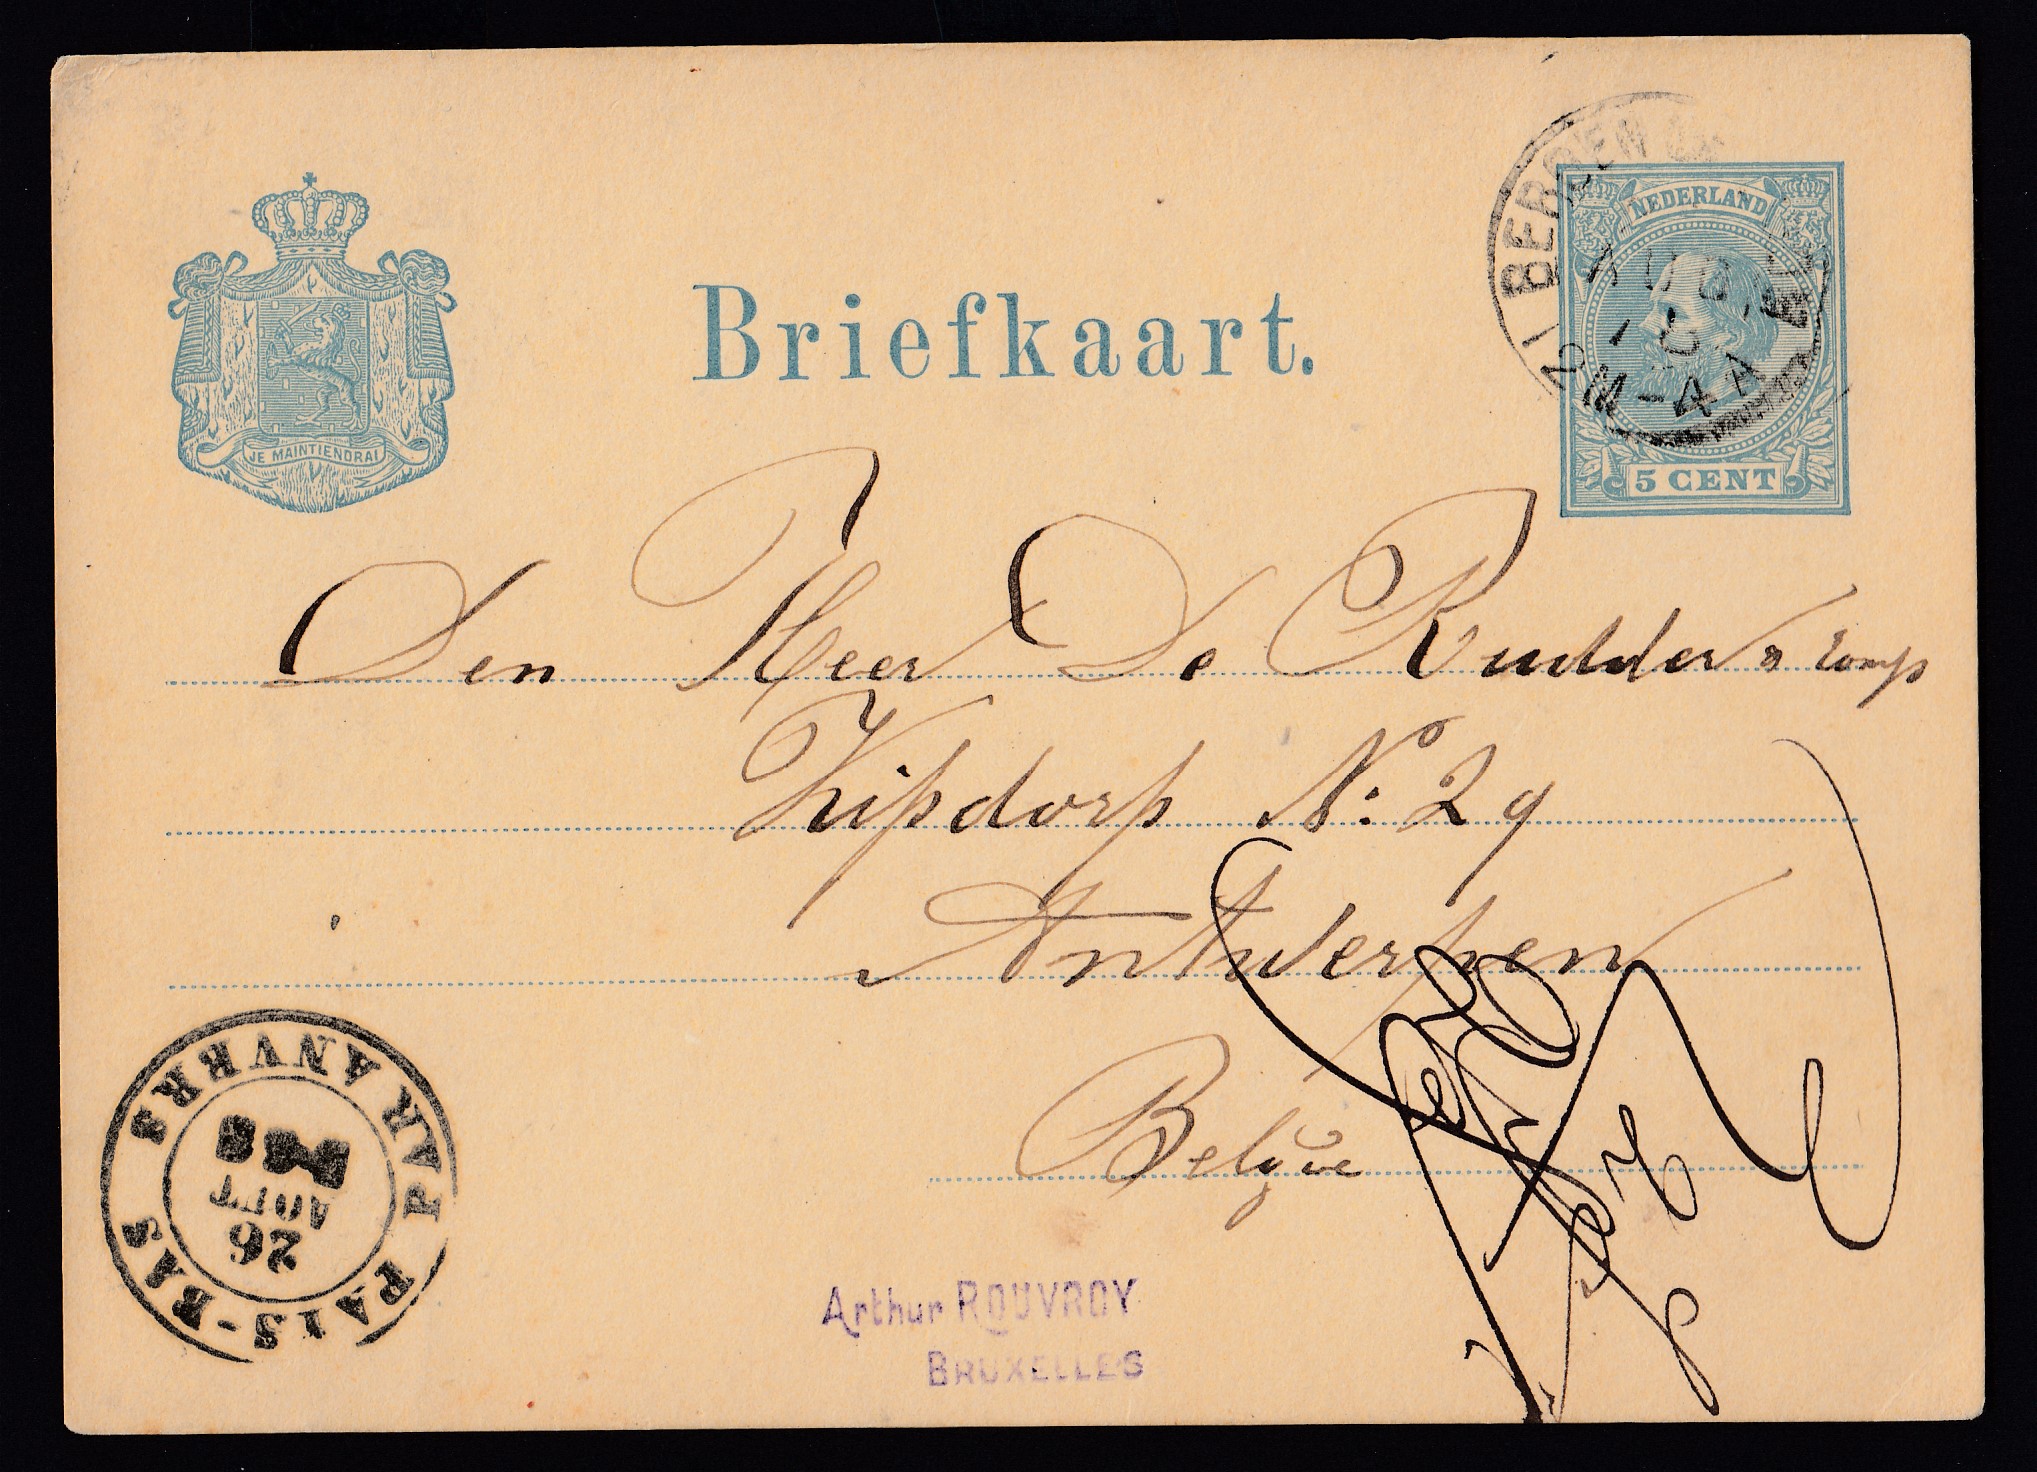 NEDERLAND
BERGEN
AUG
JE MAINTIENDRAI
Briefkaart.
5 CENT
Den Heer De Rudder & Comp
Kipdorp No: 29
Antwerpen
Belgue
PAYS-BAS PAR ANVERS
26
AOUT
Arthur ROUVROY
BRUXELLES